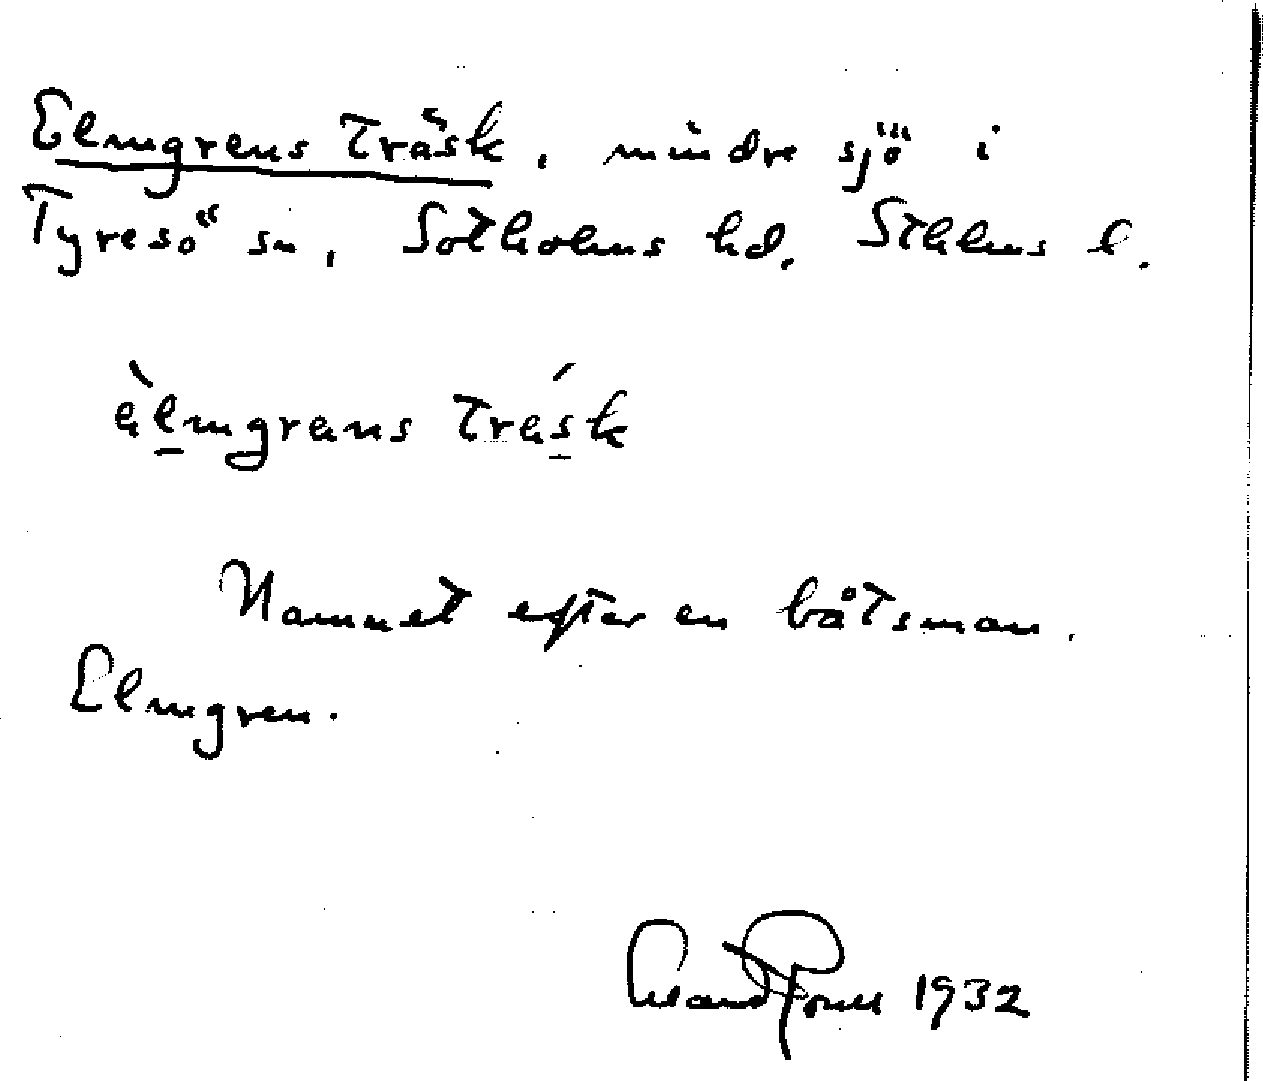 Elmgrens Träsk, mindre sjö i
Tyresö sn, Sotholms hd. Sthlms l.
älmgrens träsk
Namnet efter en båtsman.
Elmgren.
1932